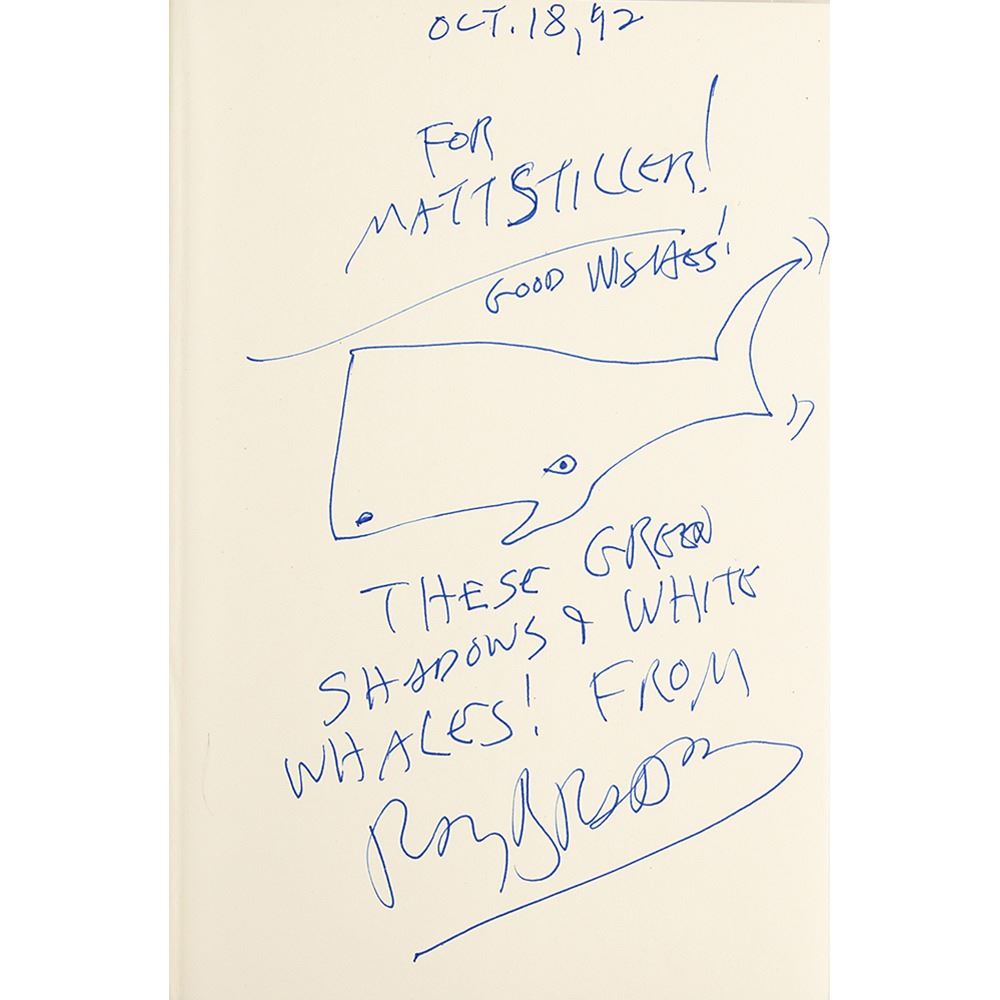 OCT. 18, 92
FOR
MATT STILLER!
GOOD WISHES!
THESE GREEN
SHADOWS & WHITE
WHALES! FROM
Ray Bradbury